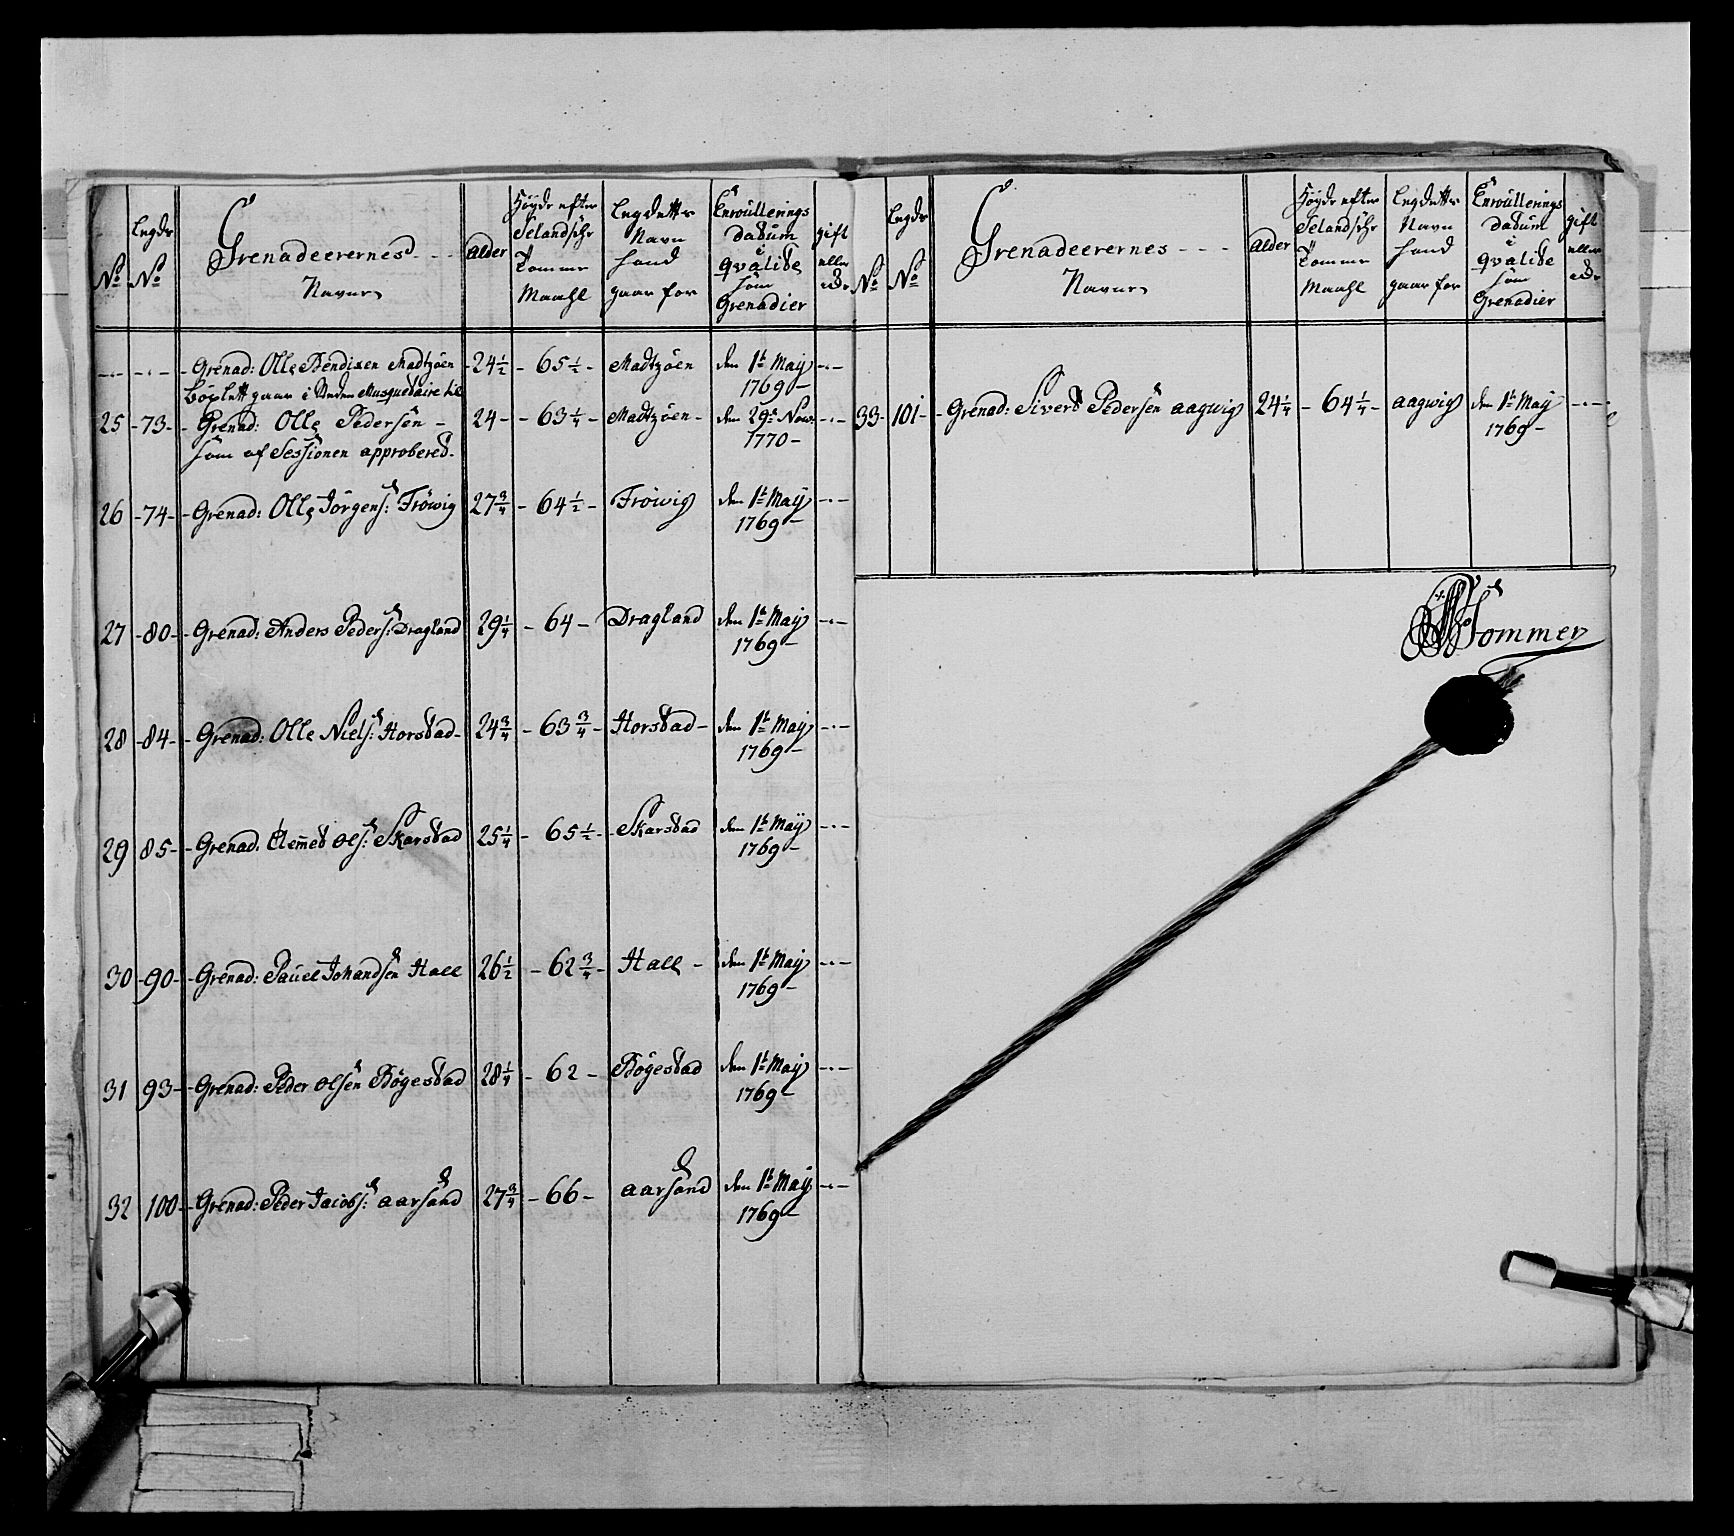 No
Legde No
Grenadeerernes
Navne
alder
Høyde efter
Selandske
Tomme
Maahl
Legdetts
Navn
hand
gaar for
Enroullerings
datum
i
qvalite
som
Grenadier
gift
eller
ei
- Grenad: Olle Bendixen Madtzøen 24½ - 65½ - Madtzøen den 1te Maij 1769 -
gaar i Steden Musquedaire til
25 - 73 - Grenad: Olle Pedersen - 24 - 63¼ - Madtzøen - den 29de Nov: 1770 -
som af Sessionen approbered.
26 - 74 - Grenad: Olle Jörgens: Fröwig 27¾ - 64½ - Fröwig den 1te Maij 1769 -
27 - 80 - Grenad: Anders Peders: Dragland 29¼ - 64 - Dragland den 1te Maij 1769 -
28 - 84 - Grenad: Olle Niels: Horstad - 24¾ - 63¾ - Horstad - den 1te Maij 1769 -
29 85 - Grenad: Clemed Ols: Skarstad 25¼ - 65½ - Skarstad den 1te Maij 1769 -
30 - 90 - Grenad: Pauel Johandsen Hall 26½ - 62¾ - Hall - den 1te Maij 1769 -
31 93 - Grenad: Peder Olsen Bögestad 28¼ - 62 - Bögestad den 1te Maij 1769 -
32 100 - Grenad: Peder Jacobs: aarsand 27¾ - 66 - aarsand den 1te Maij 1769 -
No
Legde No
Grenadeerernes - - -
Navne
alder
Høyde efter
Selandske
Tomme
Maahl
Legdetts
Navn
hand
gaar for
Enroullerings
datum
i
qvalite
som
Grenadier
gift
eller
ei
33 - 101 - Grenad: Siverd Pedersen aagwig 24¼ - 64¼ - aagwig den 1te Maij 1769 -
Sommer